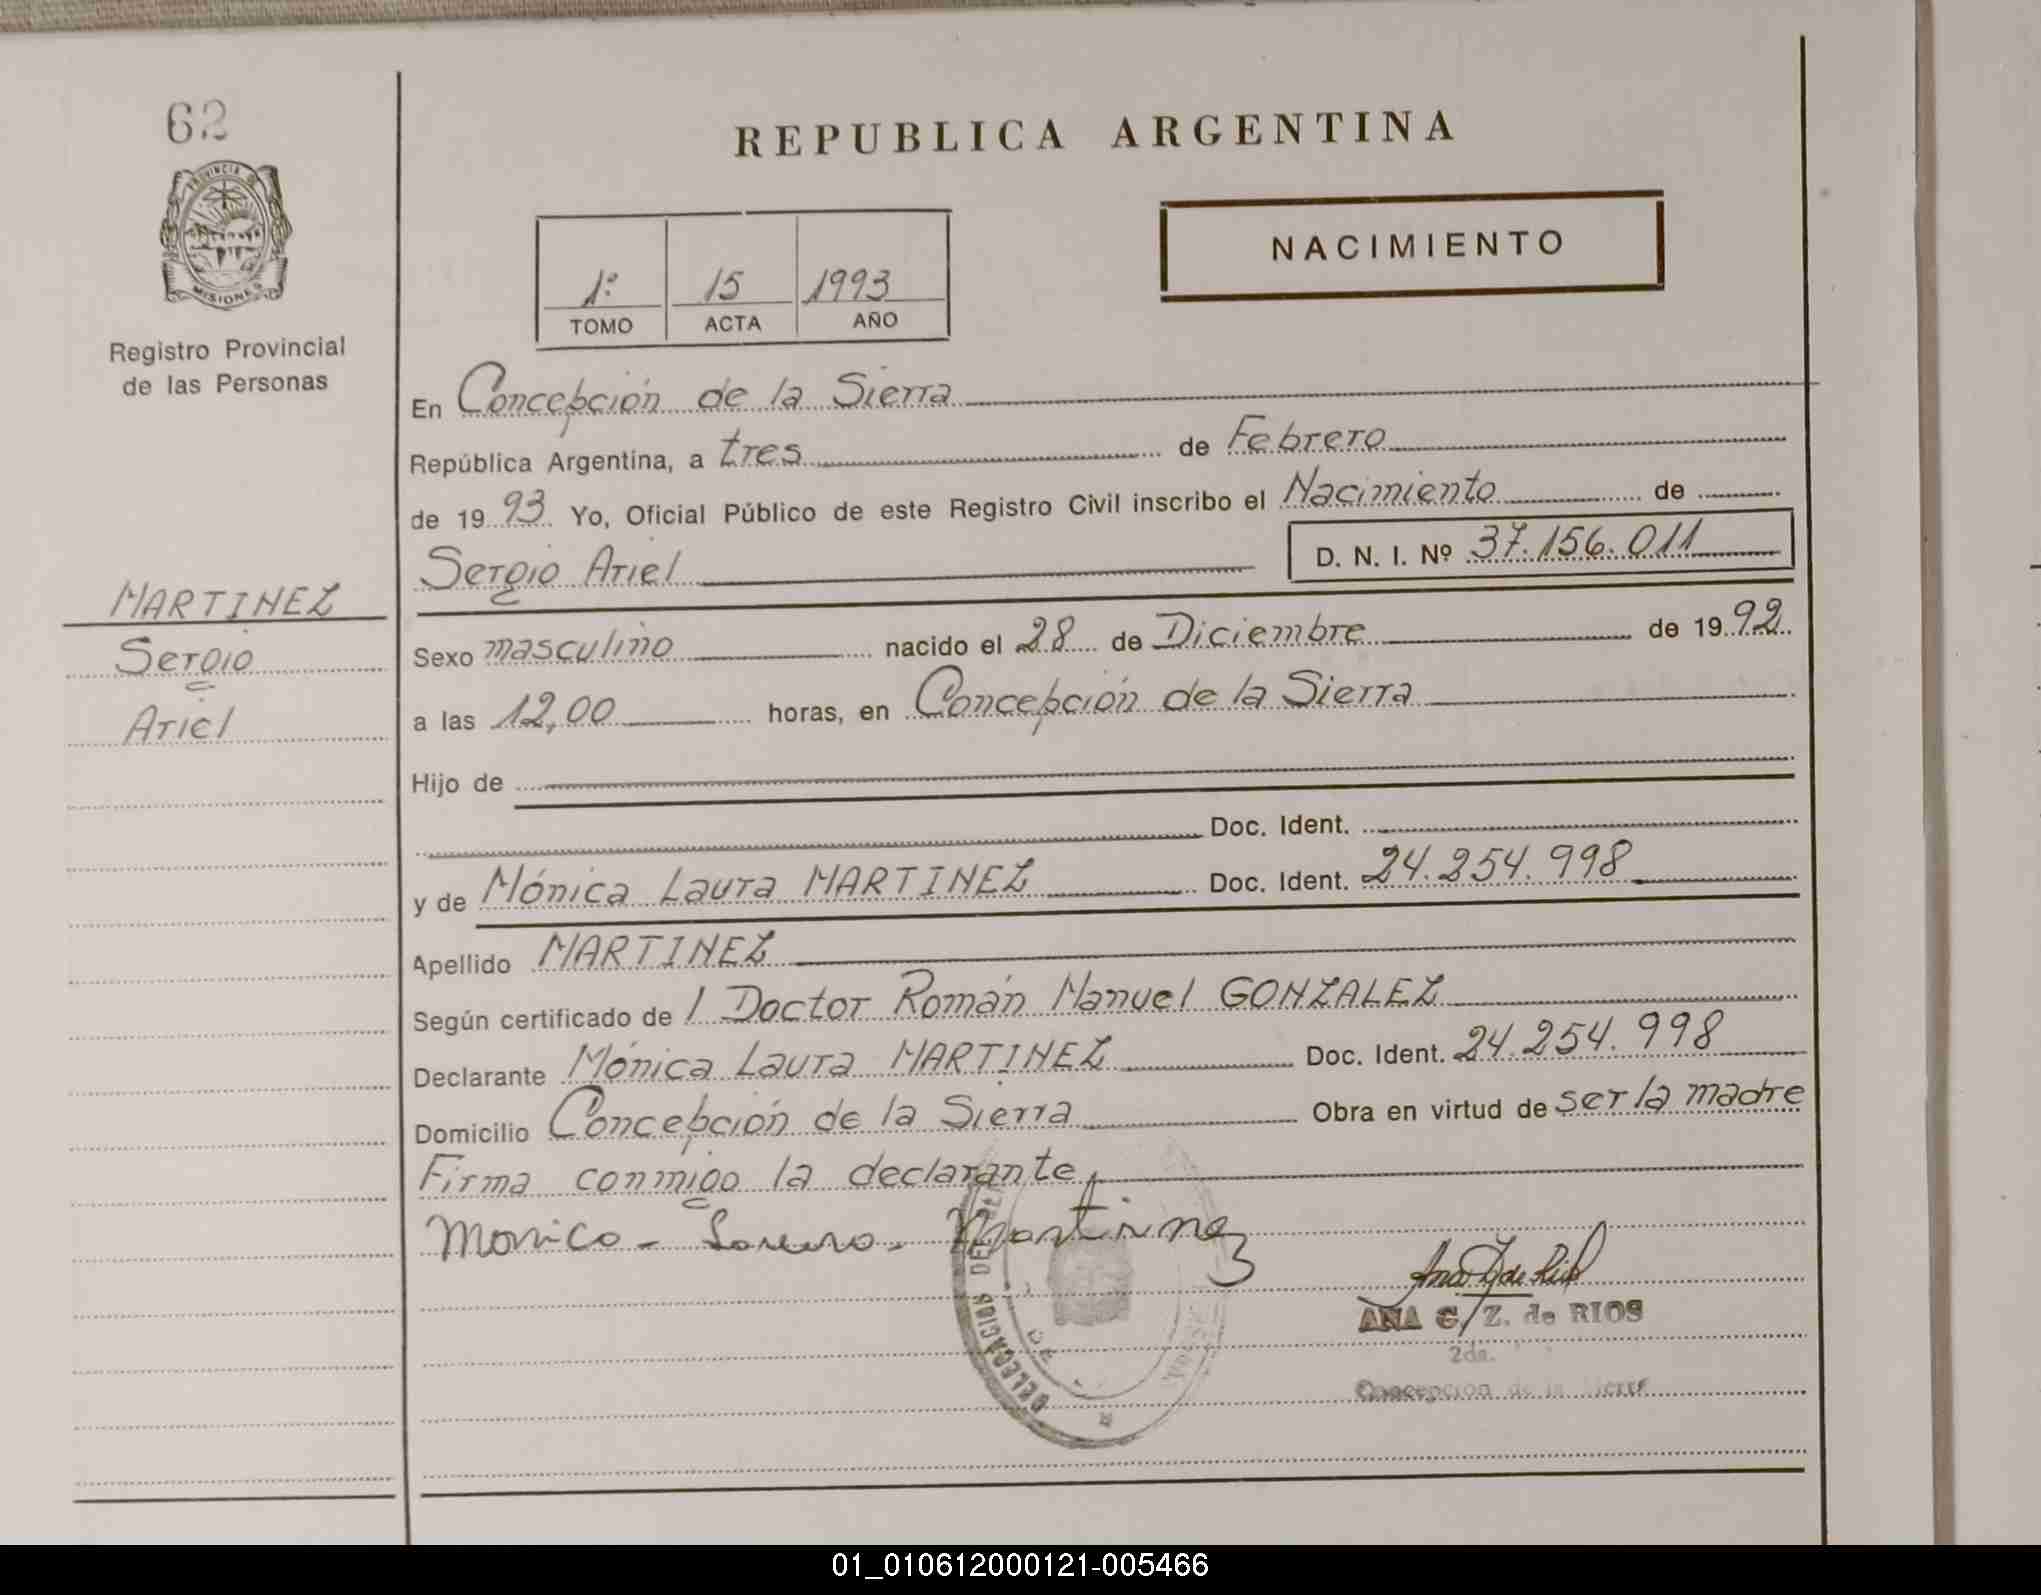 62
PROVINCIA DE
MISIONES
Registro Provincial
de las Personas
MARTINEZ
Sergio
Ariel
REPUBLICA ARGENTINA
NACIMIENTO
1º 15 1993
TOMO ACTA AÑO
En Concepción de la Sierra
República Argentina, a tres de Febrero
de 1993 Yo, Oficial Público de este Registro Civil inscribo el Nacimiento de
Sergio Ariel D. N. I. Nº 37.156.011
Sexo masculino nacido el 28 de Diciembre de 1992
a las 12,00 horas, en Concepción de la Sierra
Hijo de
Doc. Ident.
y de Mónica Laura MARTINEZ Doc. Ident. 24.254.998
Apellido MARTINEZ
Según certificado de l Doctor Román Manuel GONZALEZ
Declarante Mónica Laura MARTINEZ Doc. Ident. 24.254.998
Domicilio Concepción de la Sierra Obra en virtud de ser la madre
Firma conmigo la declarante
Monica Laura Martinez
DELEGACION DEL
ANA G. Z. de RIOS
2da.
Concepción de la Sierra
01_010612000121-005466